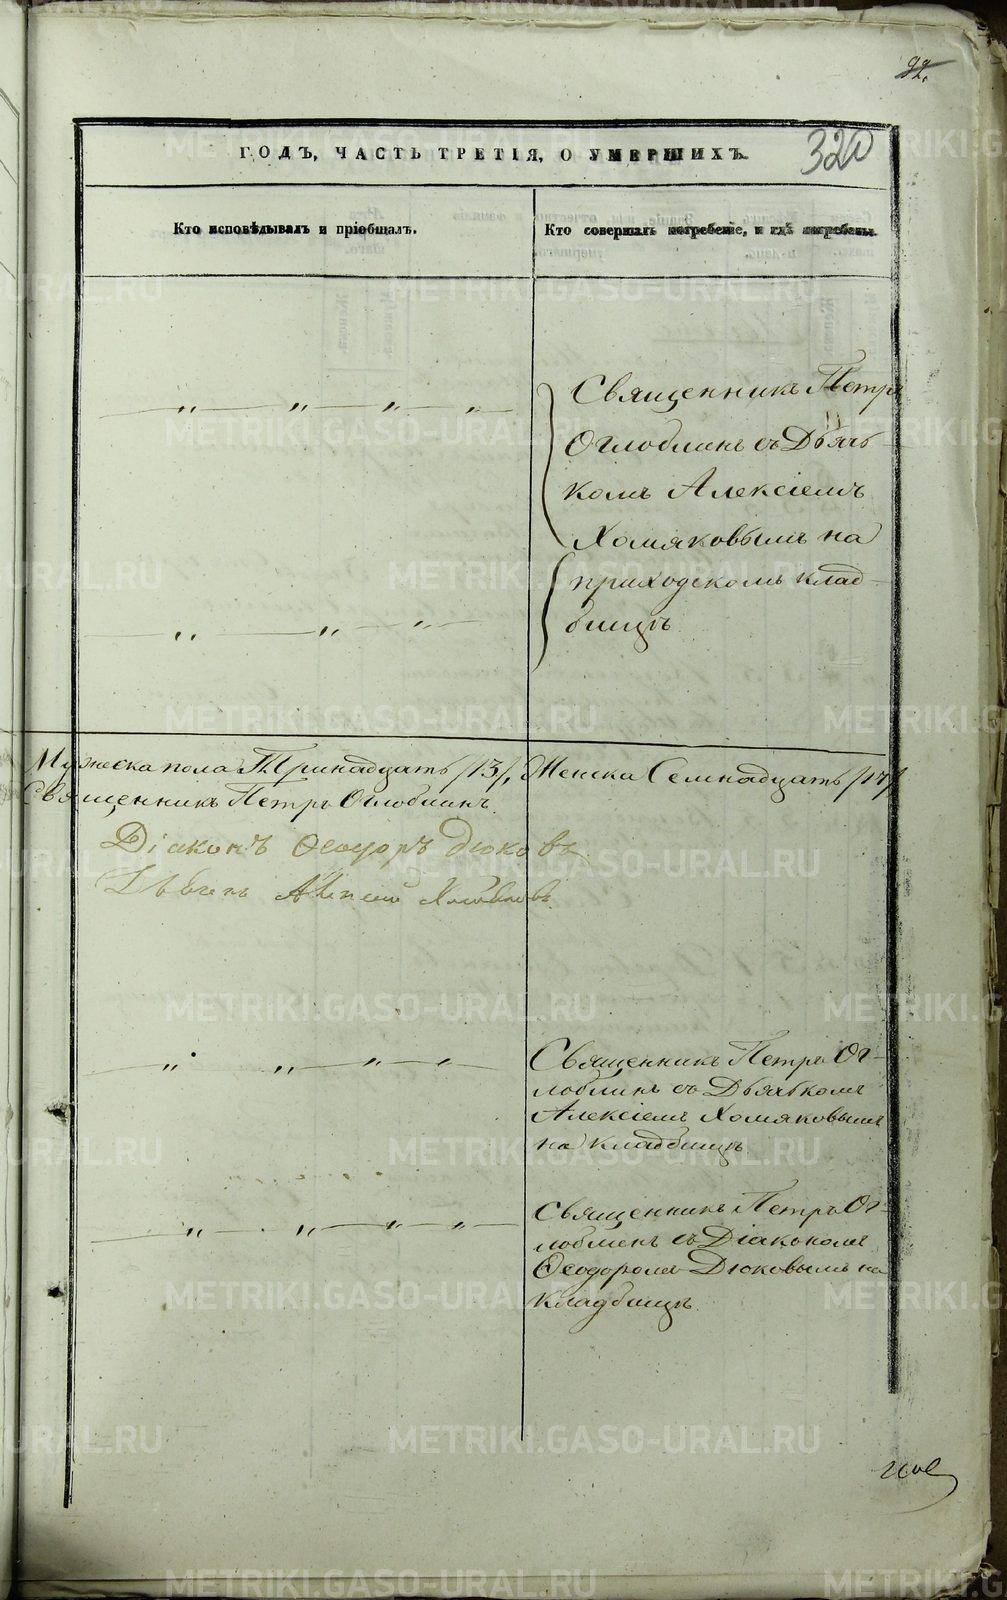 92.
320
ГОДЪ, ЧАСТЬ ТРЕТІЯ, О УМЕРШИХЪ.
Кто исповѣдывалъ и пріобщалъ.
Кто совершалъ погребеніе, и гдѣ погребены.
Священникъ Петръ
Оглоблинъ съ Дьяч-
комъ Алексіемъ
Хомяковымъ на
приходскомъ клад-
бищѣ
Мужеска пола Тринадцать /13/, Женска Семнадцать /17/
Священникъ Петръ Оглоблинъ
Діаконъ Ѳеодоръ Дюковъ
Дьячекъ Алексѣй Хомяковъ
Священникъ Петръ Ог-
лоблинъ съ Дьячкомъ
Алексіемъ Хомяковымъ
на кладбищѣ
Священникъ Петръ Ог-
лоблинъ съ Діакономъ
Ѳеодоромъ Дюковымъ на
кладбищѣ
METRIKI.GASO-URAL.RU